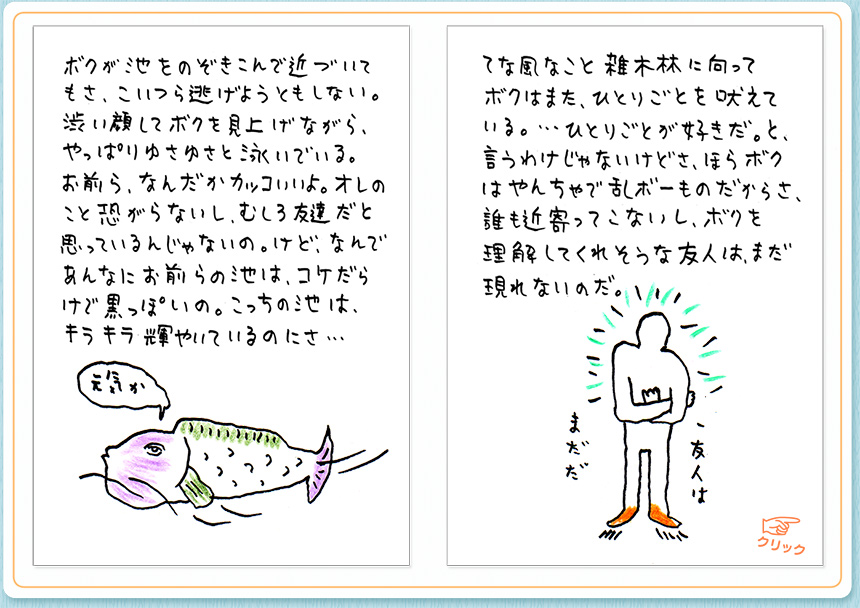 ボクが池をのぞきこんで近づいて
もさ、こいつら逃げようともしない。
渋い顔してボクを見上げながら、
やっぱりゆさゆさと泳いでいる。
お前ら、なんだかカッコいいよ。オレの
こと恐がらないし、むしろ友達だと
思っているんじゃないの。けど、なんで
あんなにお前らの池は、コケだら
けで黒っぽいの。こっちの池は、
キラキラ輝やいているのにさ…
元気か
てな風なこと雑木林に向って
ボクはまた、ひとりごとを吠えて
いる。…ひとりごとが好きだ。と、
言うわけじゃないけどさ、ほらボク
はやんちゃで乱ボーものだからさ、
誰も近寄ってこないし、ボクを
理解してくれそうな友人は、まだ
現れないのだ。
、友人は
まだだ
クリック